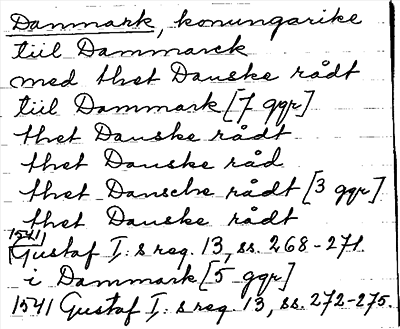 Danmark, konungarike
tiil Danmmarck
med thet Danske rådt
tiil Danmmark [7 ggr]
thet Danske rådt
thet Danske råd
thet Dansche rådt [3 ggr]
thet Danske rådt
1541
Gustaf I:s reg. 13, ss. 268-271.
i Danmmark [5 ggr]
1541 Gustaf I:s reg. 13, ss. 272-275.